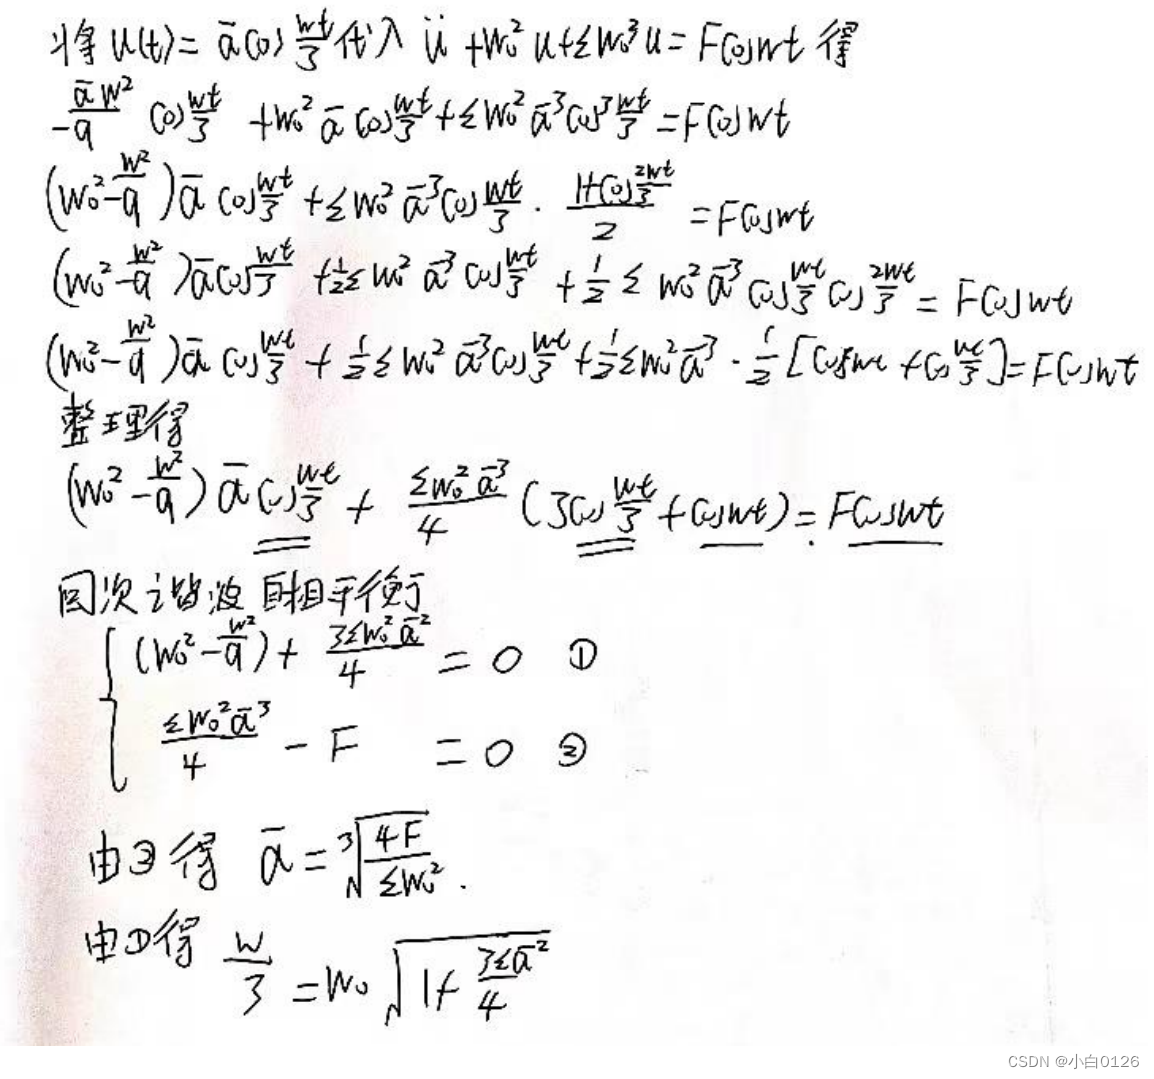 将 u(t) = ā cos wt/3 代入 ü + w₀² u + εw₀³ u = F cos wt 得
-āw²/9 cos wt/3 + w₀² ā cos wt/3 + εw₀² ā³ cos³ wt/3 = F cos wt
(w₀² - w²/9) ā cos wt/3 + εw₀² ā³ cos wt/3 · (1+cos 2wt/3)/2 = F cos wt
(w₀² - w²/9) ā cos wt/3 + 1/2 ε w₀² ā³ cos wt/3 + 1/2 ε w₀² ā³ cos wt/3 cos 2wt/3 = F cos wt
(w₀² - w²/9) ā cos wt/3 + 1/2 ε w₀² ā³ cos wt/3 + 1/2 ε w₀² ā³ · 1/2 [cos wt + cos wt/3] = F cos wt
整理得
(w₀² - w²/9) ā cos wt/3 + εw₀² ā³/4 (3cos wt/3 + cos wt) = F cos wt
同次谐波自相平衡
(w₀² - w²/9) + 3εw₀² ā²/4 = 0 ①
εw₀² ā³/4 - F = 0 ②
由②得 ā = ³√(4F/εw₀²).
由①得 w/3 = w₀ √(1 + 3εā²/4)
CSDN @小白0126